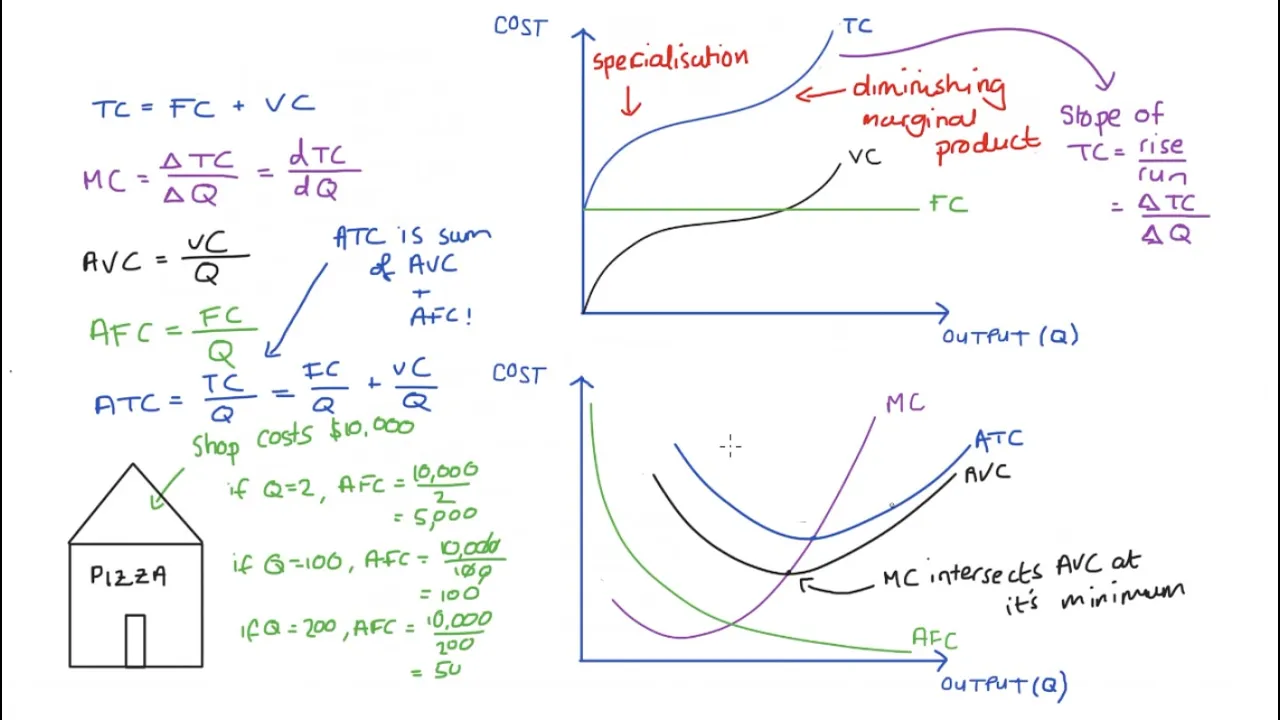 TC = FC + VC
MC = ΔTC/ΔQ = dTC/dQ
AVC = VC/Q
ATC is sum
of AVC
+
AFC!
AFC = FC/Q
ATC = TC/Q = FC/Q + VC/Q
Shop costs $10,000
if Q=2, AFC = 10,000/2
= 5,000
if Q=100, AFC = 10,000/100
= 100
if Q=200, AFC = 10,000/200
= 50
PIZZA
COST
TC
specialisation
diminishing
marginal
product
VC
FC
Slope of
TC = rise/run
= ΔTC/ΔQ
OUTPUT (Q)
COST
MC
ATC
AVC
MC intersects AVC at
it's minimum
AFC
OUTPUT (Q)